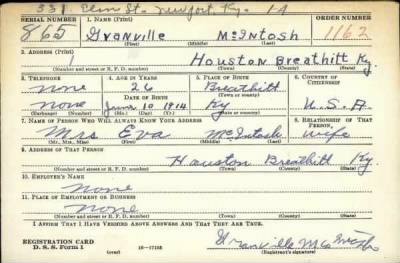 331 Elm St. Newport, Ky. 1A
SERIAL NUMBER 1. NAME (Print) ORDER NUMBER
865 Granville McIntosh 1162
(First) (Middle) (Last)
2. ADDRESS (Print)
Houston Breathitt Ky.
(Number and street or R. F. D. number) (Town) (County) (State)
3. TELEPHONE 4. AGE IN YEARS 5. PLACE OF BIRTH 6. COUNTRY OF CITIZENSHIP
none 26 Breathitt
DATE OF BIRTH (Town or county)
none June 10 1914 Ky U.S.A.
(Exchange) (Number) (Mo.) (Day) (Yr.) (State or country)
7. NAME OF PERSON WHO WILL ALWAYS KNOW YOUR ADDRESS 8. RELATIONSHIP OF THAT PERSON
Mrs Eva McIntosh wife
(Mr., Mrs., Miss) (First) (Middle) (Last)
9. ADDRESS OF THAT PERSON
Houston Breathitt Ky.
(Number and street or R. F. D. number) (Town) (County) (State)
10. EMPLOYER'S NAME
None
11. PLACE OF EMPLOYMENT OR BUSINESS
None
(Number and street or R. F. D. number) (Town) (County) (State)
I AFFIRM THAT I HAVE VERIFIED ABOVE ANSWERS AND THAT THEY ARE TRUE.
REGISTRATION CARD
D. S. S. Form 1 (over) 16—17105 Granville McIntosh
(Registrant's signature)